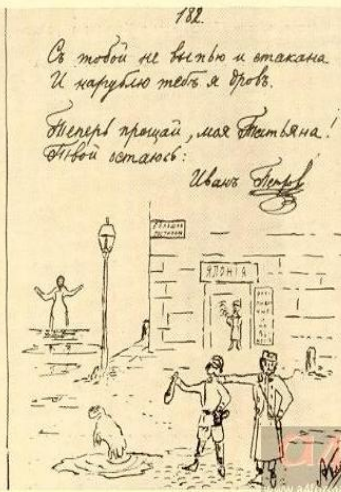 182.
Съ тобой не выпью и стакана
И нарублю тебѣ я дровъ.
Теперь прощай, моя Татьяна!
Твой остаюсь:
Иванъ Петров
ЯПОНІЯ